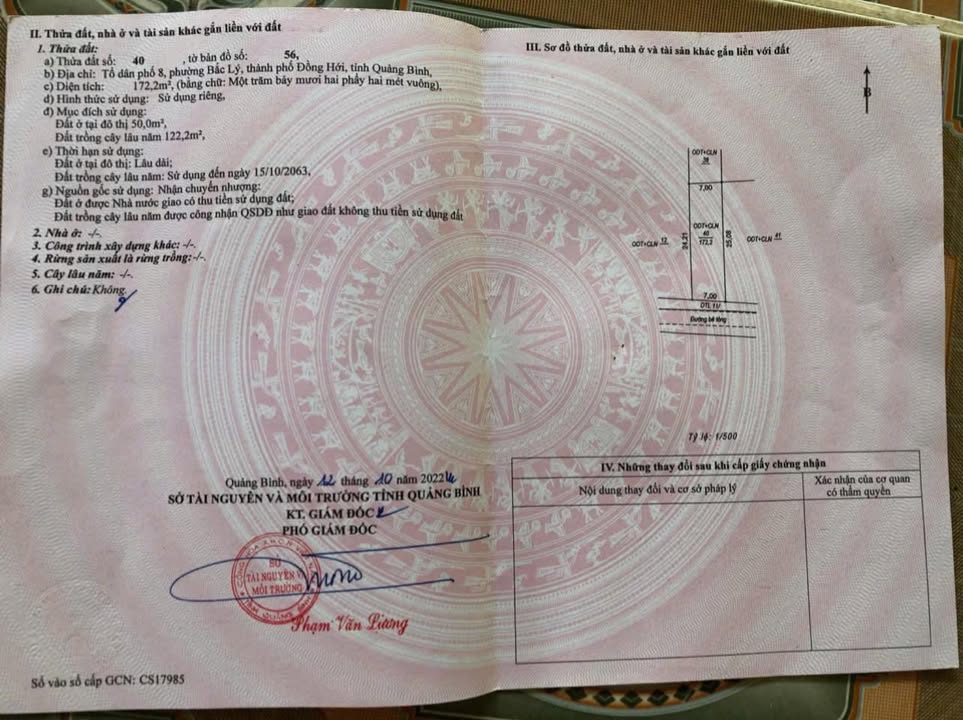 II. Thửa đất, nhà ở và tài sản khác gắn liền với đất
1. Thửa đất:
a) Thửa đất số: 40 , tờ bản đồ số: 56,
b) Địa chỉ: Tổ dân phố 8, phường Bắc Lý, thành phố Đồng Hới, tỉnh Quảng Bình,
c) Diện tích: 172,2m², (bằng chữ: Một trăm bảy mươi hai phẩy hai mét vuông),
d) Hình thức sử dụng: Sử dụng riêng,
đ) Mục đích sử dụng:
Đất ở tại đô thị 50,0m²,
Đất trồng cây lâu năm 122,2m²,
e) Thời hạn sử dụng:
Đất ở tại đô thị: Lâu dài;
Đất trồng cây lâu năm: Sử dụng đến ngày 15/10/2063,
g) Nguồn gốc sử dụng: Nhận chuyển nhượng:
Đất ở được Nhà nước giao có thu tiền sử dụng đất;
Đất trồng cây lâu năm được công nhận QSDĐ như giao đất không thu tiền sử dụng đất
2. Nhà ở: -/-
3. Công trình xây dựng khác: -/-
4. Rừng sản xuất là rừng trồng: -/-.
5. Cây lâu năm: -/-.
6. Ghi chú: Không.
Quảng Bình, ngày 12 tháng 10 năm 2022
SỞ TÀI NGUYÊN VÀ MÔI TRƯỜNG TỈNH QUẢNG BÌNH
KT. GIÁM ĐỐC
PHÓ GIÁM ĐỐC
SỞ
TÀI NGUYÊN VÀ
MÔI TRƯỜNG
Phạm Văn Lương
Số vào sổ cấp GCN: CS17985
III. Sơ đồ thửa đất, nhà ở và tài sản khác gắn liền với đất
B
ODT+CLN
7,00
ODT+CLN
40
172,2
24,21
25,08
ODT+CLN 12
ODT+CLN 41
7,00
Đường bê tông
Tỷ lệ: 1/500
IV. Những thay đổi sau khi cấp giấy chứng nhận
Nội dung thay đổi và cơ sở pháp lý
Xác nhận của cơ quan
có thẩm quyền